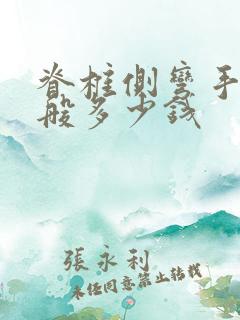 脊柱侧弯手
般多少钱
張永利
未经同意禁止转载